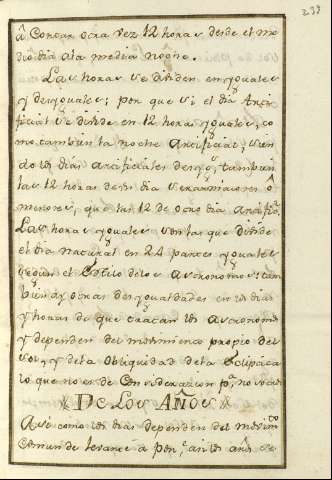 239
â Contar otra vez 12 horas desde el me
dio dia ala media noche.
Las horas se dividen en yguales
y desyguales; por que si el dia Arti
ficial se divide en 12 horas yguales, co
mo tambien la noche Artificial, sien
do los dias artificiales desygs, tampien
las 12 horas de un dia seran maiores ô
menores, que las 12 de otro dia Artifl.
Las horas yguales son las que divide
el dia natural en 24 partes yguales
segun el Estilo delos Astronomos: tam
bien ay otras desygualdades en los dias
y horas de que tratan los Astronomos
y dependen del movimiento propio del
sol, y dela obliquidad dela Eclipitica
lo que no es de Consideracion pa. nosotros
De Los Años
Asi como los dias dependen del movimto
Comun de levante a pone. asi los años de